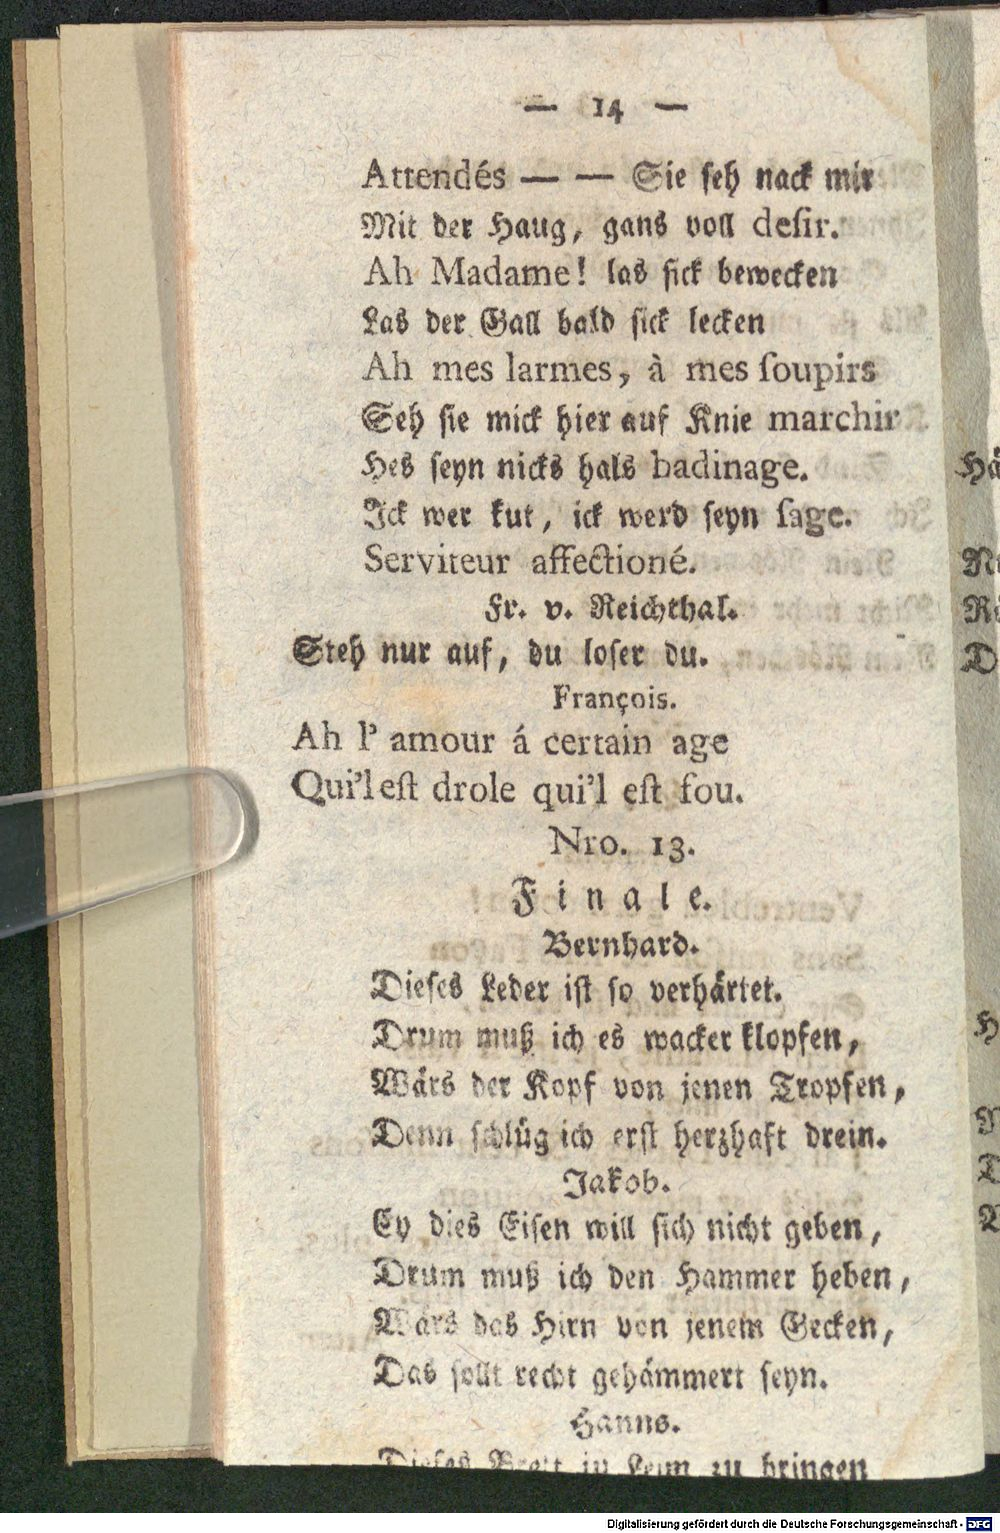 — 14 —
Attendés — — Sie seh nack mir
Mit der Haug, gans voll desir.
Ah Madame! las sick bewecken
Las der Gall bald sick lecken
Ah mes larmes, à mes soupirs
Seh sie mick hier auf Knie marchir
Hes seyn nicks hals badinage.
Ick wer kut, ick werd seyn sage.
Serviteur affectioné.
Fr. v. Reichthal.
Steh nur auf, du loser du.
François.
Ah l' amour á certain age
Qui'l est drole qui'l est fou.
Nro. 13.
Finale.
Bernhard.
Dieses Leder ist so verhärtet.
Drum muß ich es wacker klopfen,
Wärs der Kopf von jenen Tropfen,
Denn schlüg ich erst herzhaft drein.
Jakob.
Ey dies Eisen will sich nicht geben,
Drum muß ich den Hammer heben,
Wärs das Hirn von jenem Gecken,
Das sollt recht gehämmert seyn.
Hanns.
Dieses Brett in Leim zu bringen
Digitalisierung gefördert durch die Deutsche Forschungsgemeinschaft - DFG